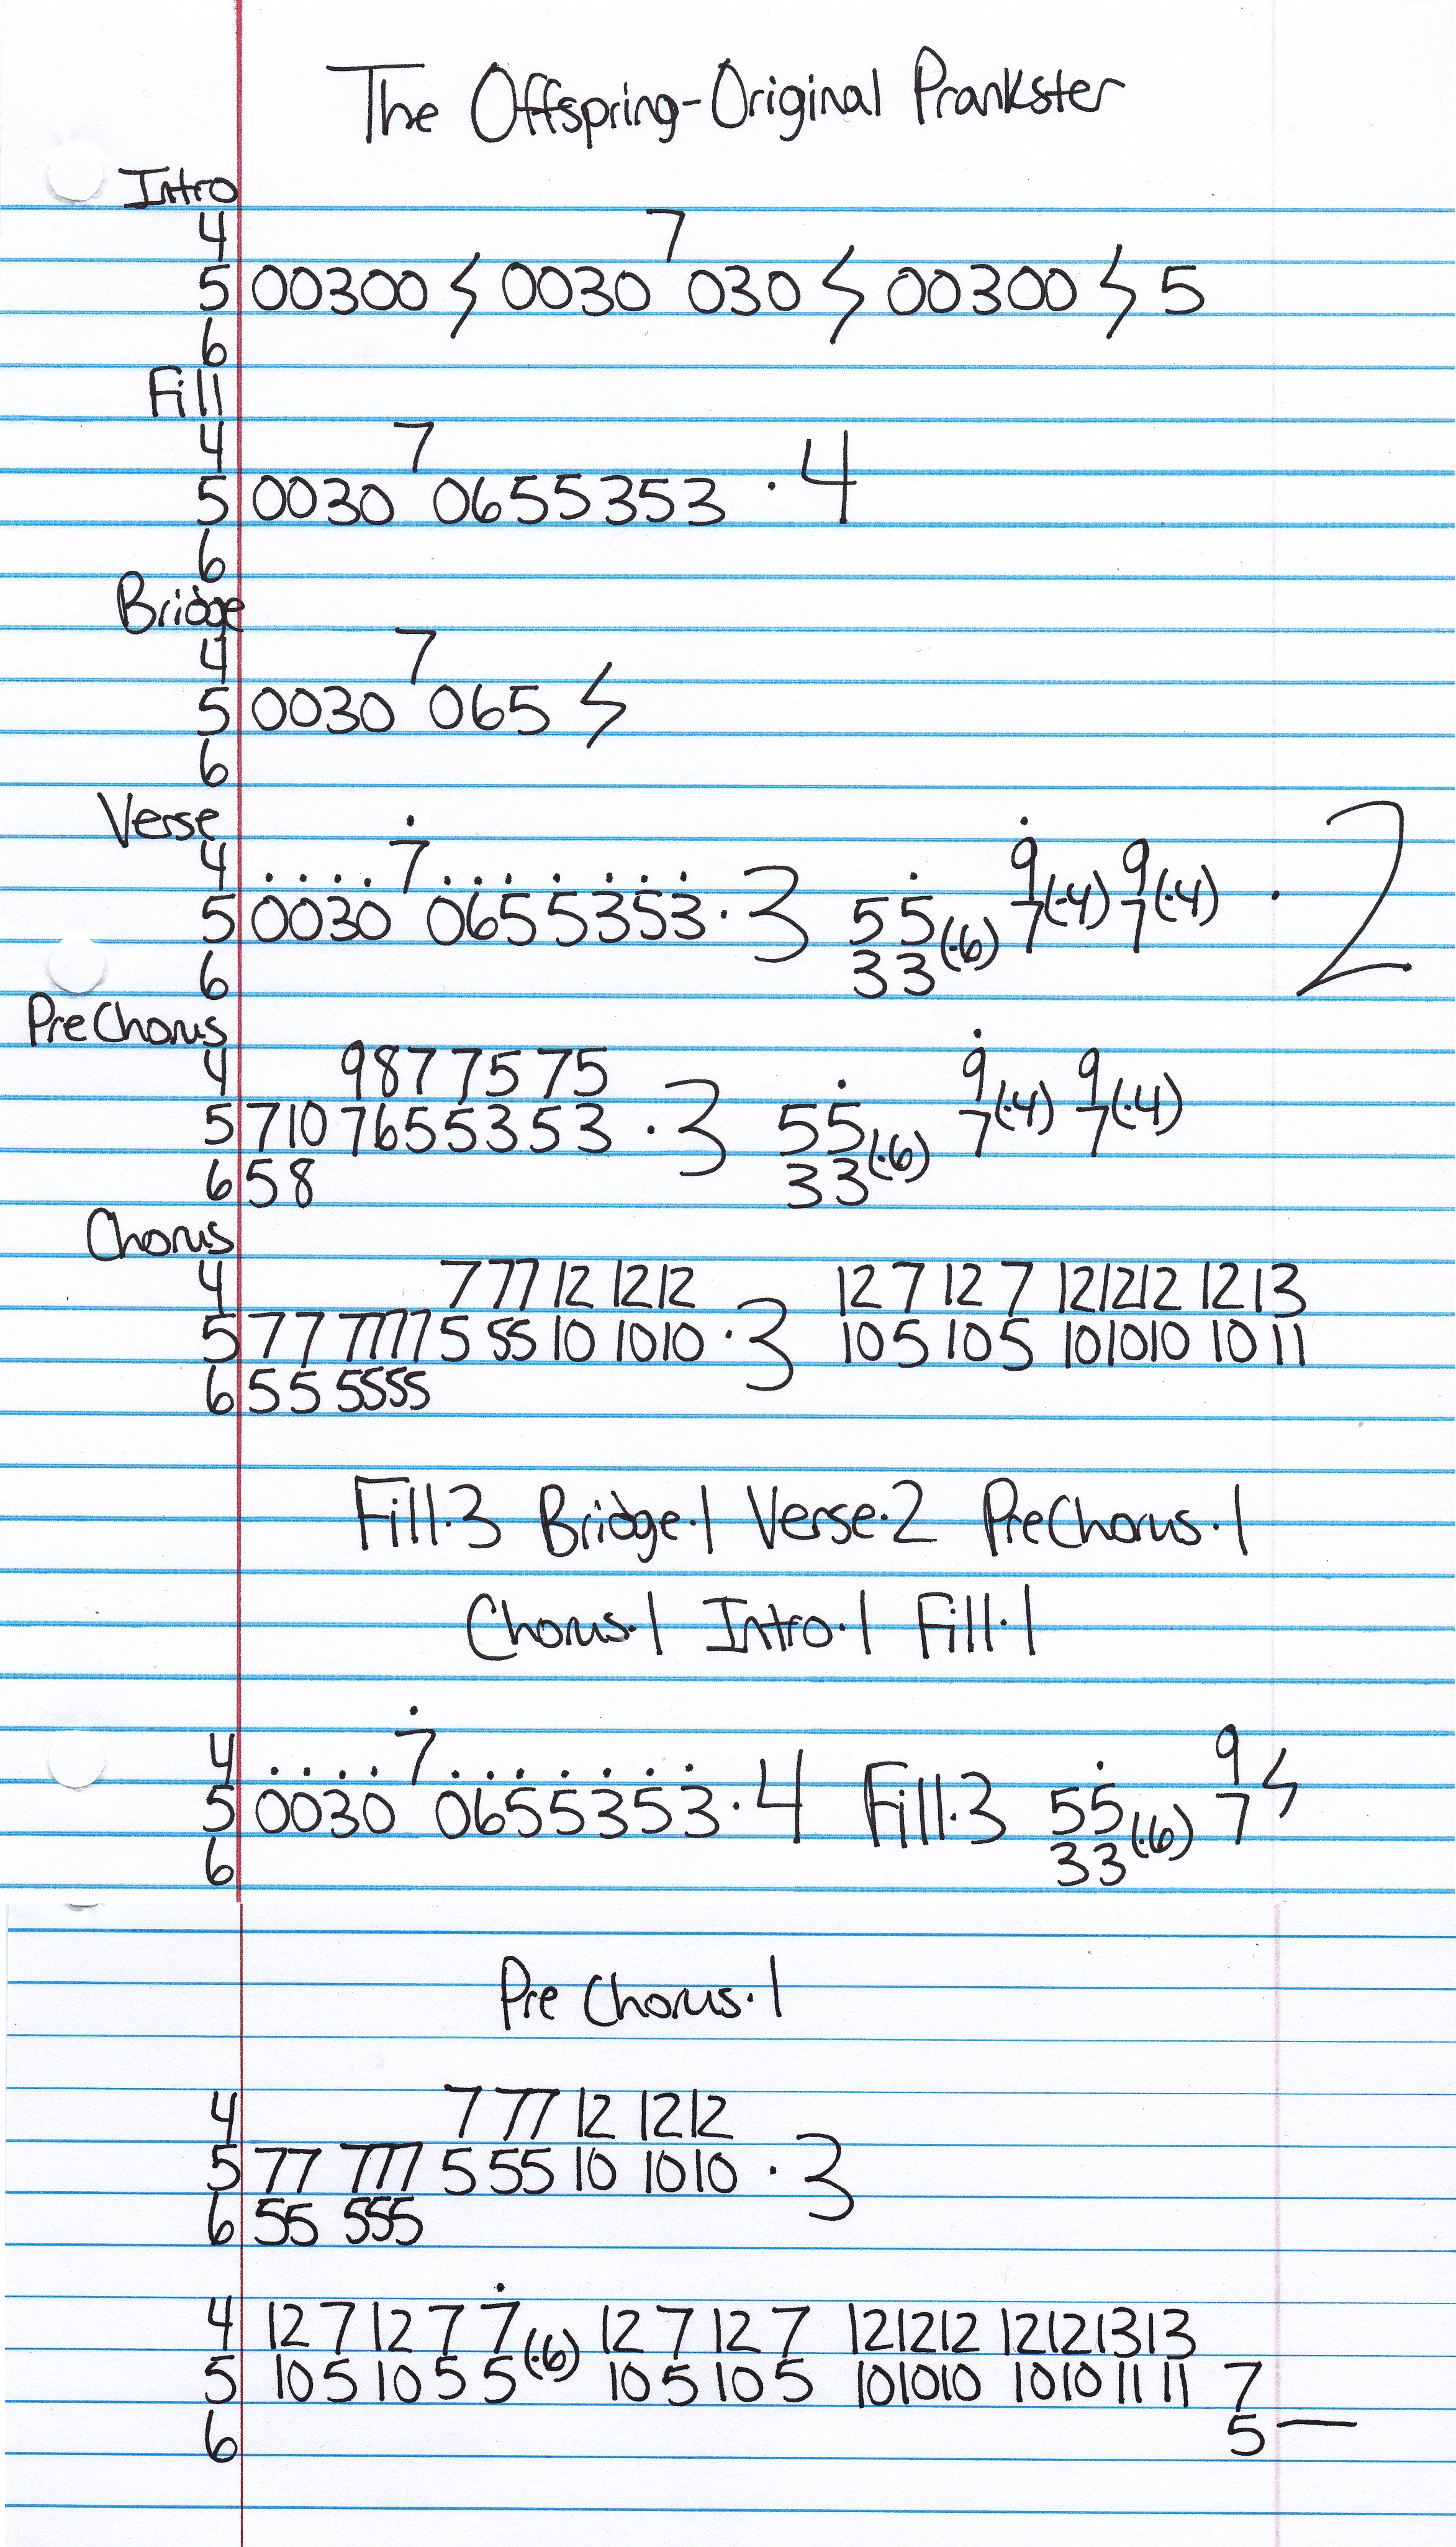 The Offspring-Original Prankster
Intro
4 7
5 00300 0030 030 00300 5
6
Fill
4 7
5 0030 0655353 · 4
6
Bridge
4 7
5 0030 065
6
Verse
4 . . . . 7 . . . . . . . 9 9
5 0030 0655353 · 3 55 (·6) 7 (·4) 7 (·4) · 2
6 33
PreChorus
4 9877575 9 9
5 710 7655353 · 3 55 (·6) 7 (·4) 7 (·4)
6 58 33
Chorus
4 7 77 12 1212 12 7 12 7 121212 1213
5 77 7777 5 55 10 1010 · 3 10 5 10 5 101010 10 11
6 55 5555
Fill·3 Bridge·1 Verse·2 PreChorus·1
Chorus·1 Intro·1 Fill·1
4 . . . . 7 . . . . . . . 9
5 0030 0655353 · 4 Fill·3 55 (·6) 7
6 33
Pre Chorus·1
4 7 77 12 1212
5 77 777 5 55 10 1010 · 3
6 55 555
4 12 7 12 7 7 (·6) 12 7 12 7 121212 12121313
5 10 5 10 5 5 10 5 10 5 101010 10101111 7
6 5—